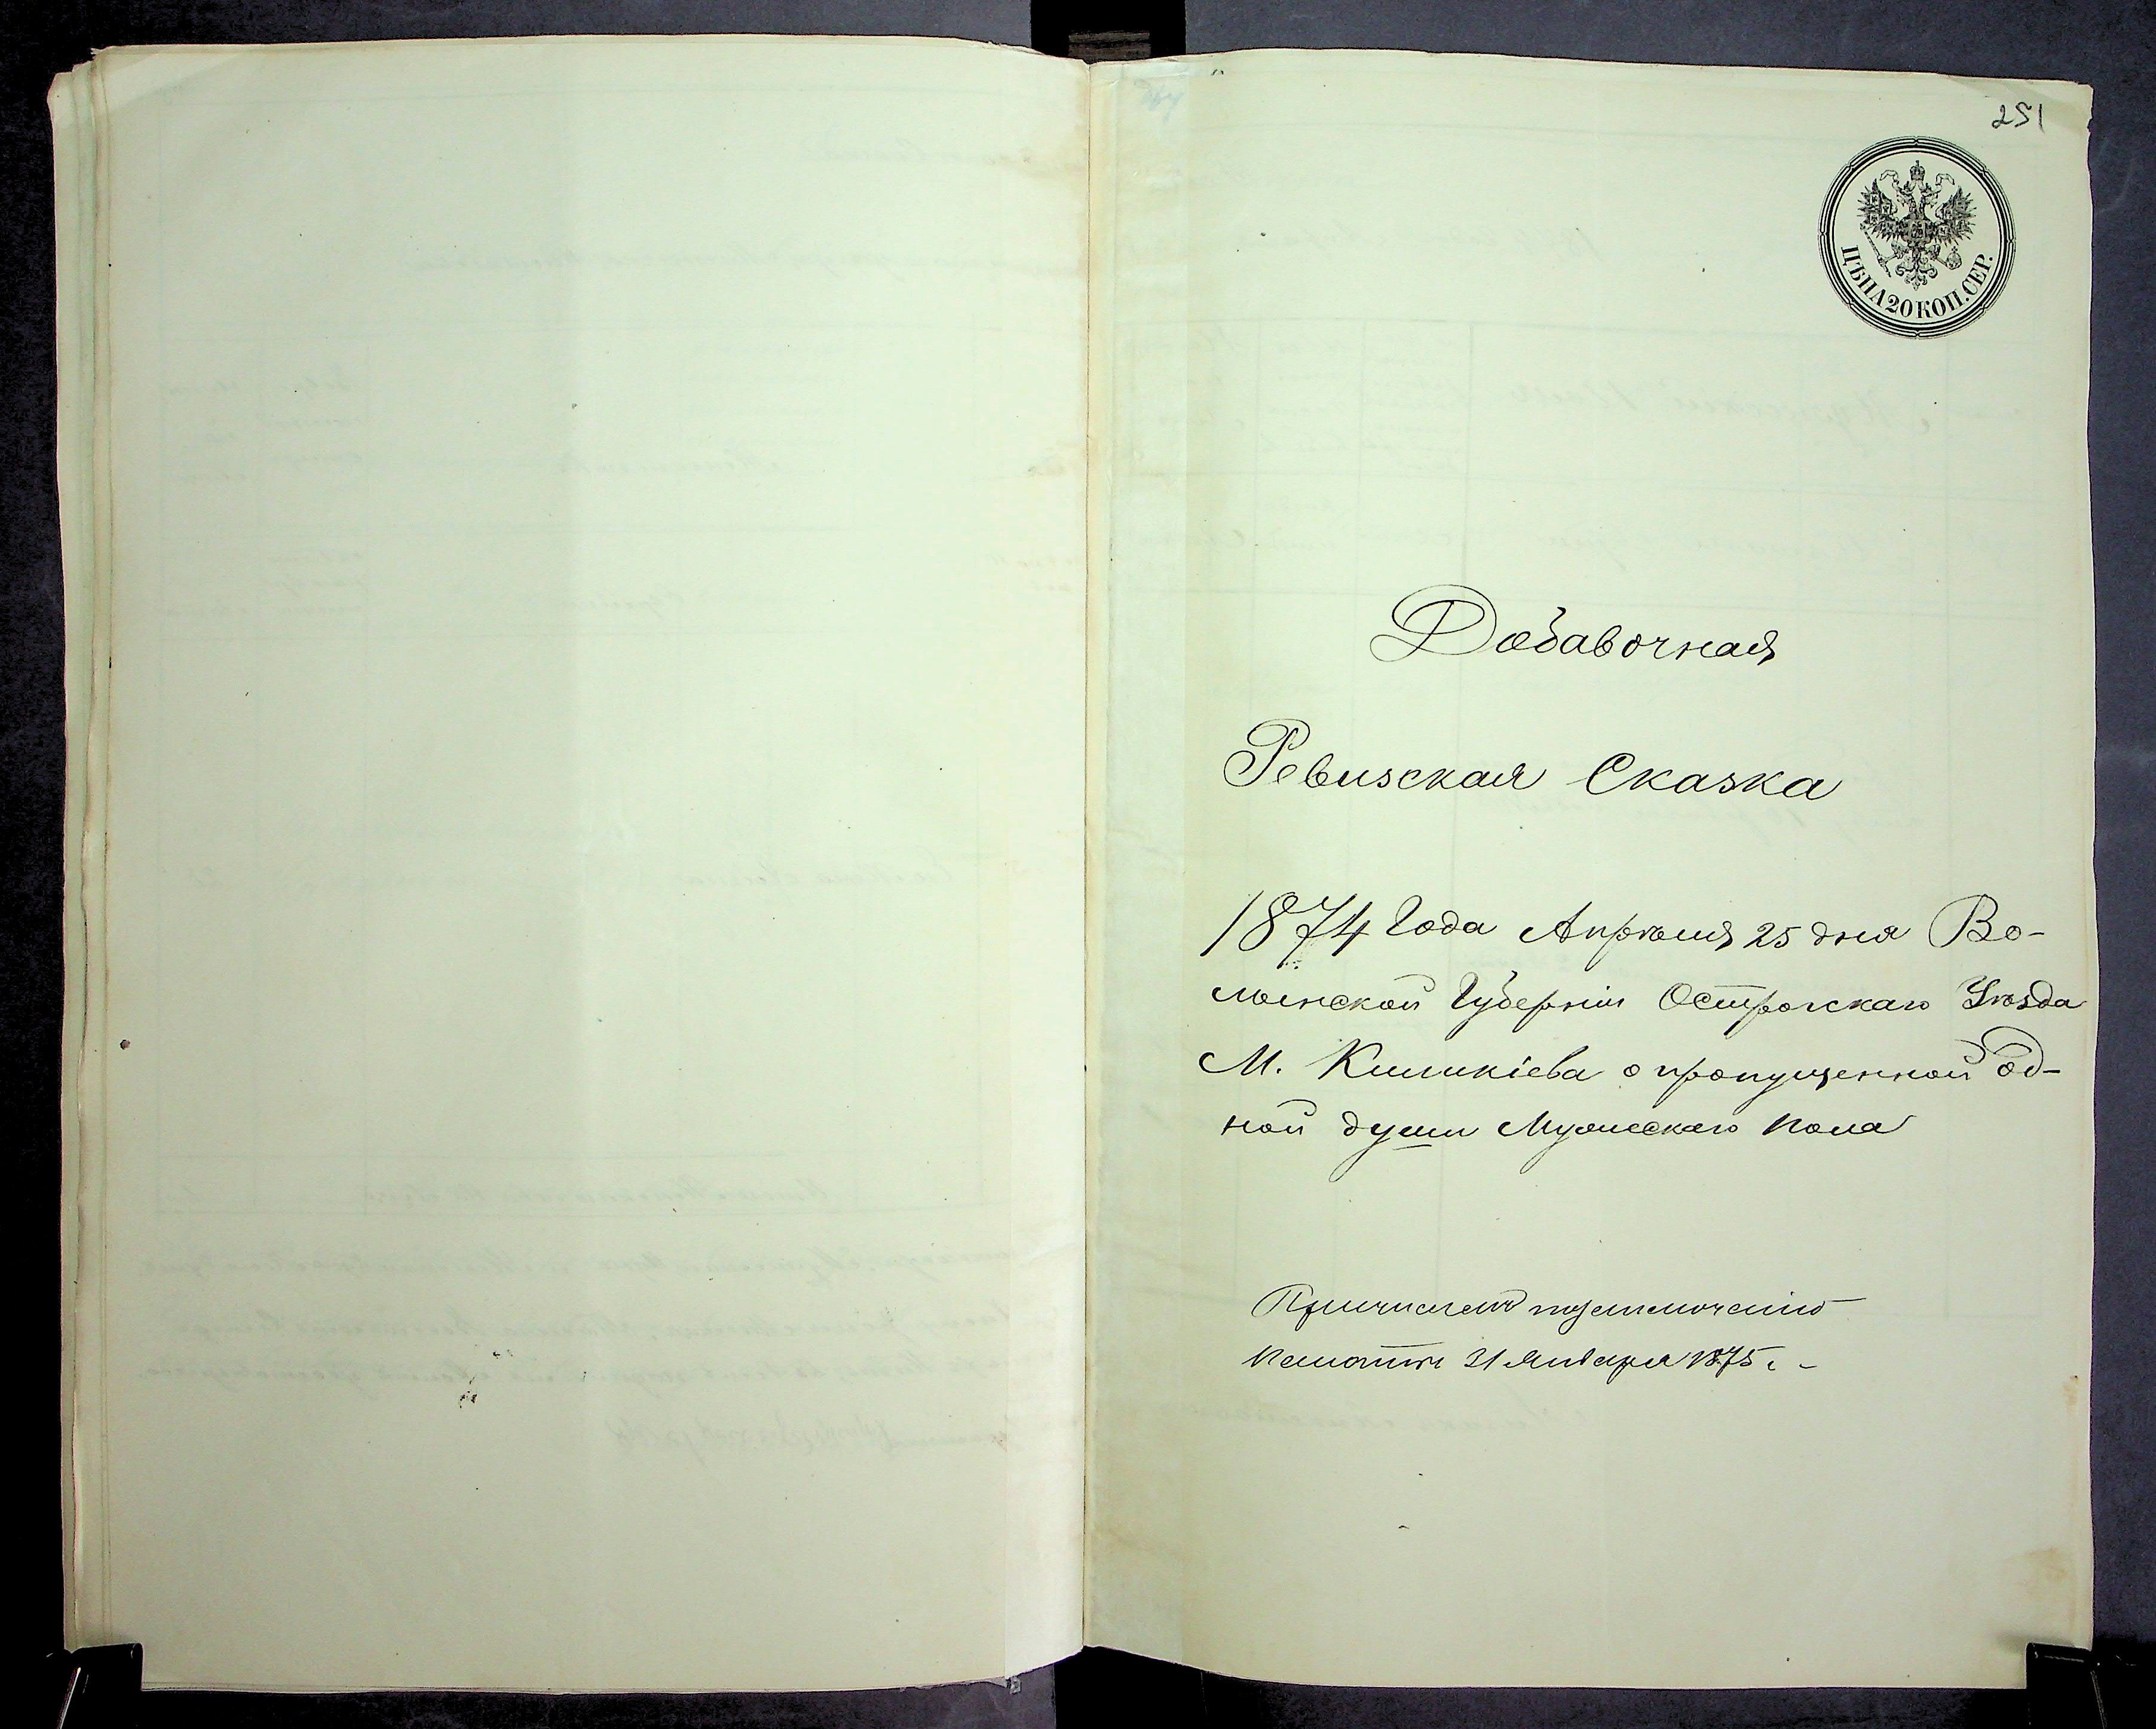 251
ЦѢНА 20 КОП. СЕР.
Добавочная
Ревизская Сказка
1874 Года Апрѣля 25 дня Во-
лынской Губерніи Острожскаго Уѣзда
М. Киликіева о пропущенной од-
ной души Мужескаго пола
Причисленъ
Палаты 31 Января 1875 г.